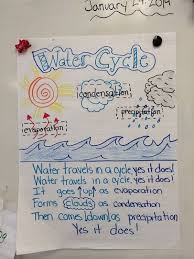 January 29, 2014
Water Cycle
condensation
precipitation
evaporation
Water travels in a cycle yes it does!
Water travels in a cycle, yes it does!
It goes ↑up↑ as evaporation
Forms clouds as condensation
Then comes ↓down↓ as precipitation
Yes it does!